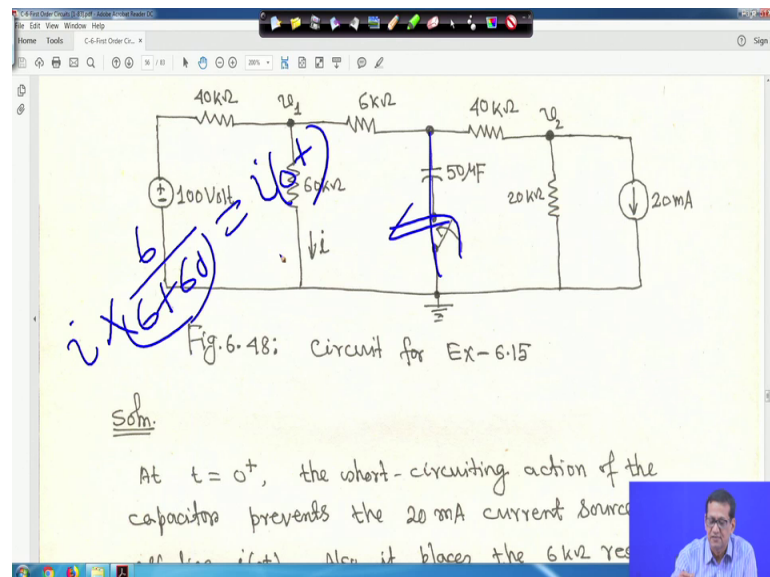 C-6-First Order Circuits (1-83).pdf - Adobe Acrobat Reader DC
File Edit View Window Help
Home Tools C-6-First Order Cir... × Sign
56 / 83 200%
40kΩ v1 6kΩ 40kΩ v2
100Volt 60kΩ 50μF 20kΩ 20mA
i
i × 6/(6+60) = i(0+)
Fig.6.48: Circuit for Ex-6.15
Soln.
At t=0+, the short-circuiting action of the
capacitor prevents the 20 mA current source
i(0+). Also it places the 6kΩ res